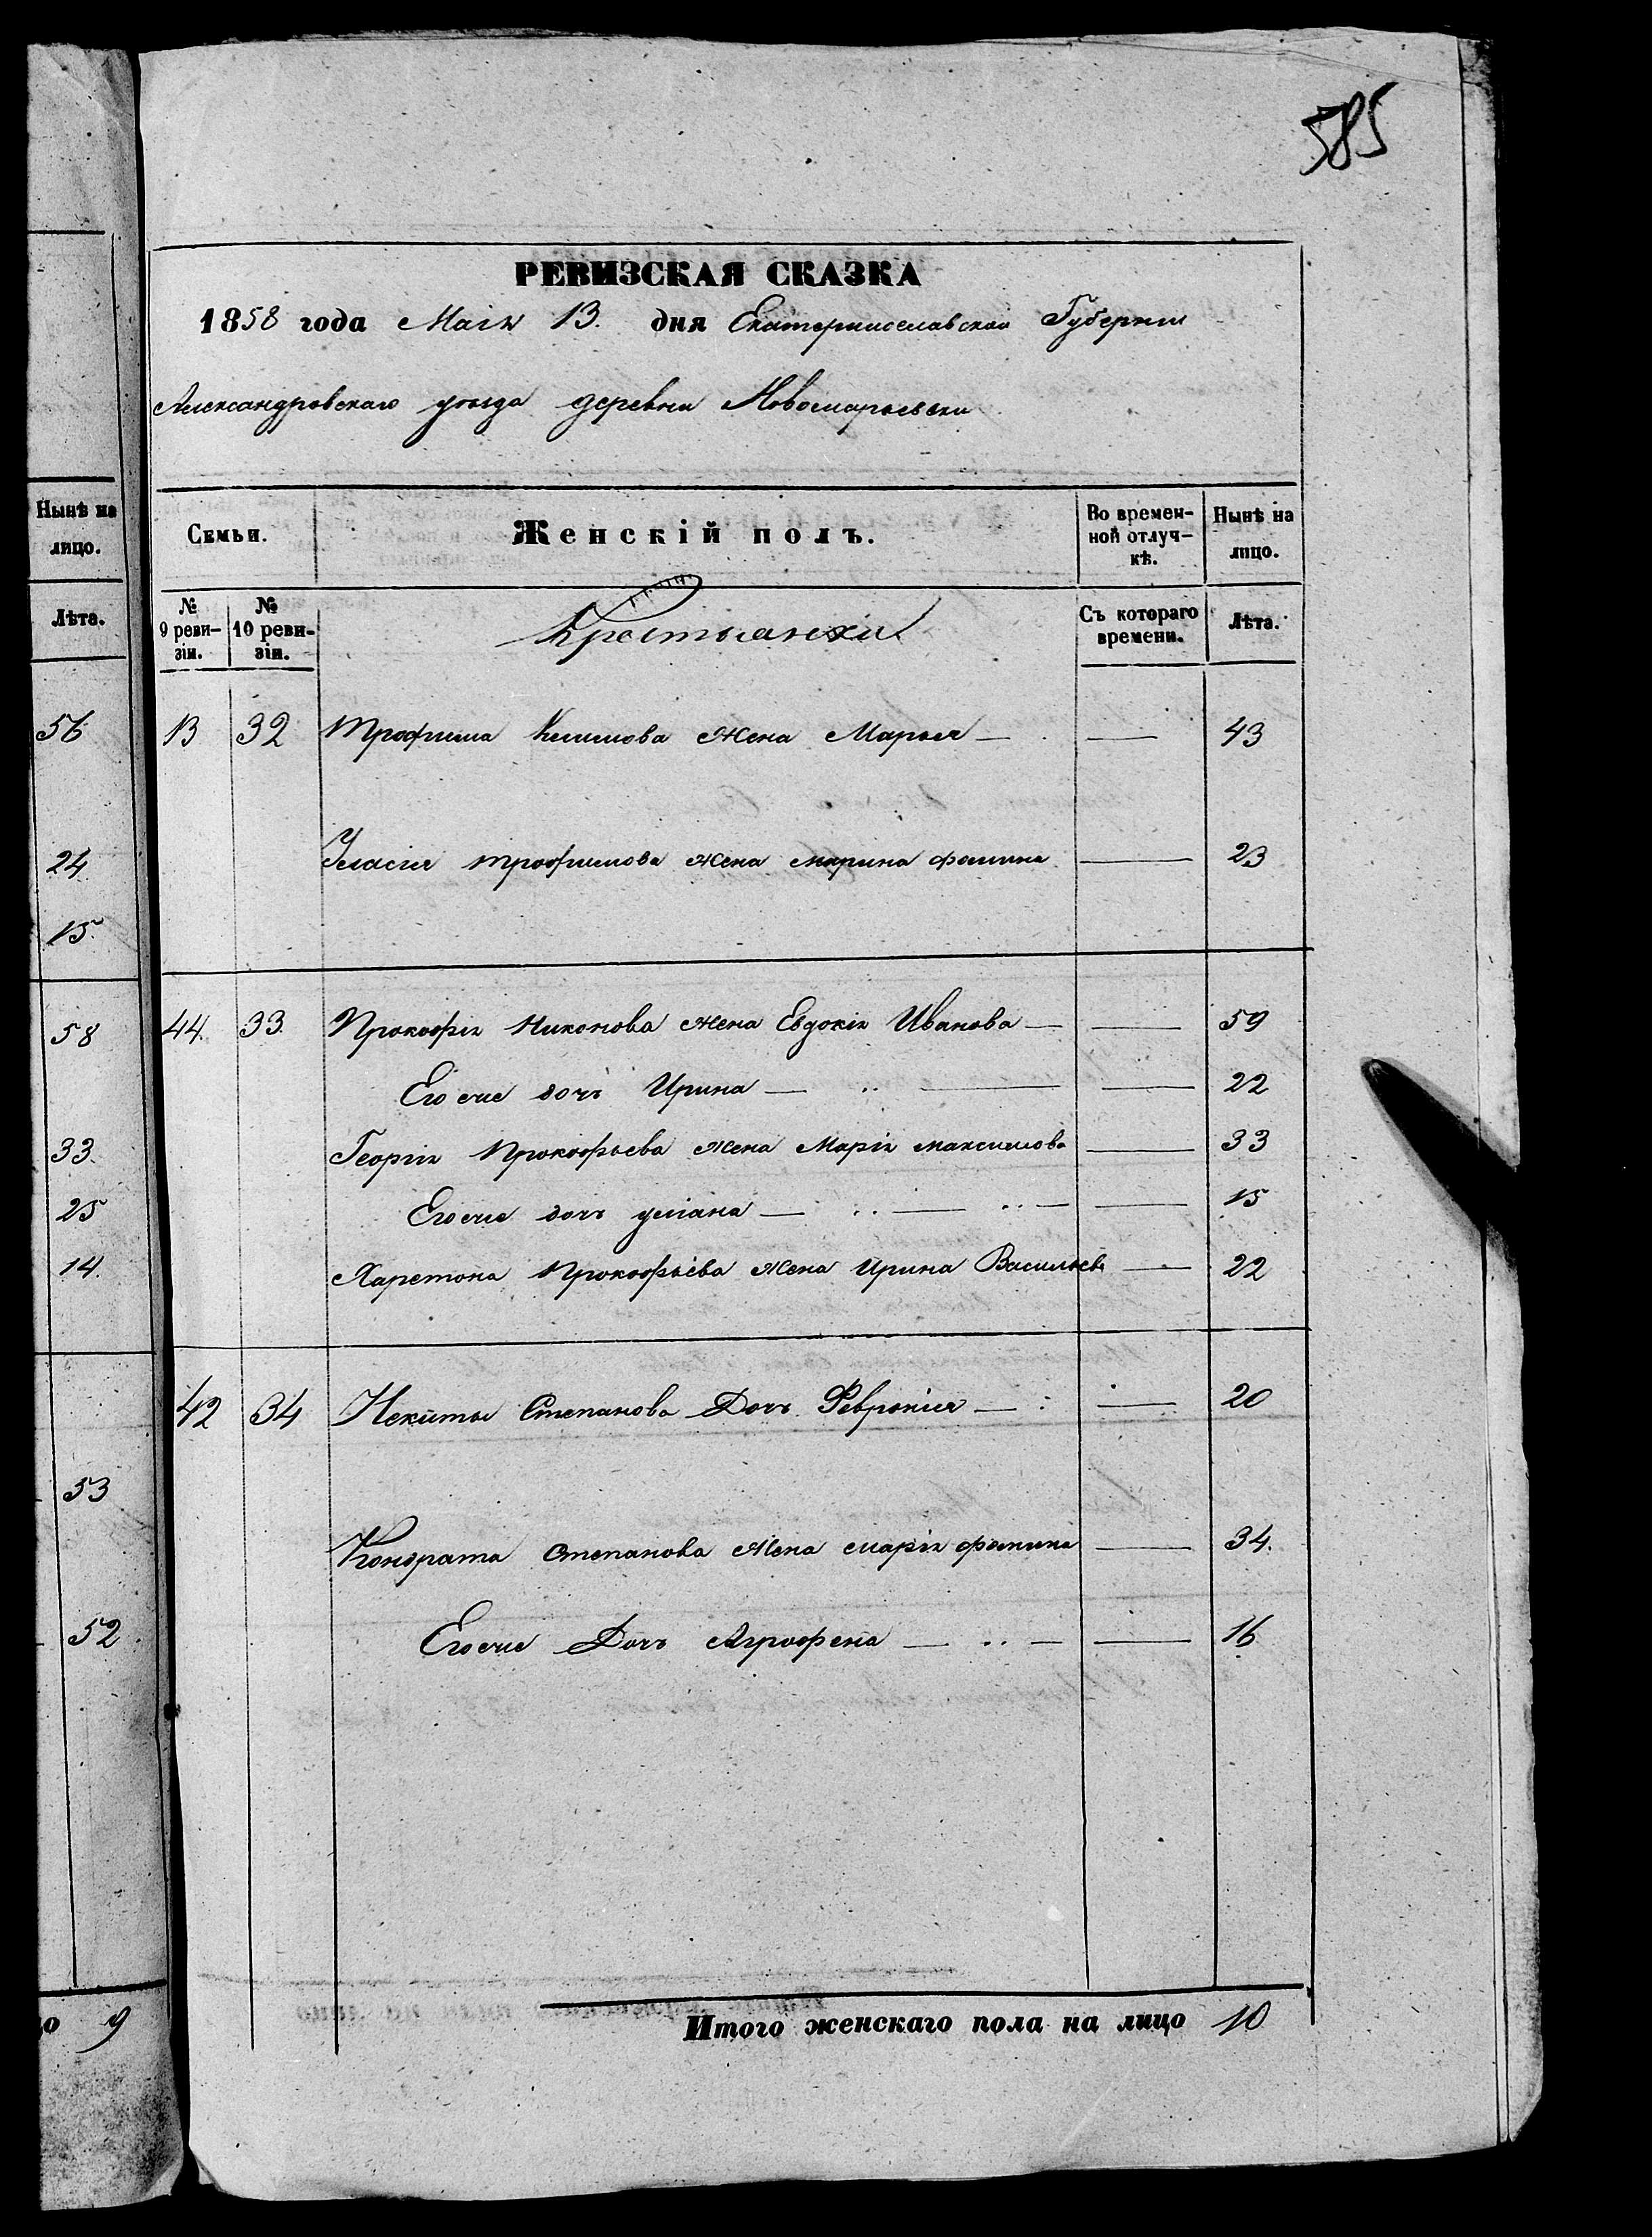 585
РЕВИЗСКАЯ СКАЗКА
1858 года Маія 13. дня Екатеринославской Губернии
Александровскаго уезда деревни Новомарьевки
Нынѣ на лицо.
Лѣта.
56
24
15
58
33
25
14
53
52
9
Семьи.
Женскій полъ.
Во времен-
ной отлуч-
кѣ.
Нынѣ на
лицо.
№
9 реви-
зіи.
№
10 реви-
зіи.
Крестьянки
Съ котораго
времени.
Лѣта.
13 32 Трофима Климова жена Марья — — 43
Уласія трофимова жена марина фомина — 23
44. 33. Прокофія Никонова жена Евдокія Иванова — — 59
Его еще дочъ Ирина — — — 22
Георгія Прокофьева жена Марія максимова — 33
Его еще дочь улiана — — — 15
Харетона Прокофьева жена Ирина Васильева — 22
42 34 Некиты Степанова Дочь Февронія — — 20
Кондрата степанова жена марія фомина — 34.
Его еще Дочь Агрофена — — — 16
Итого женскаго пола на лицо 10